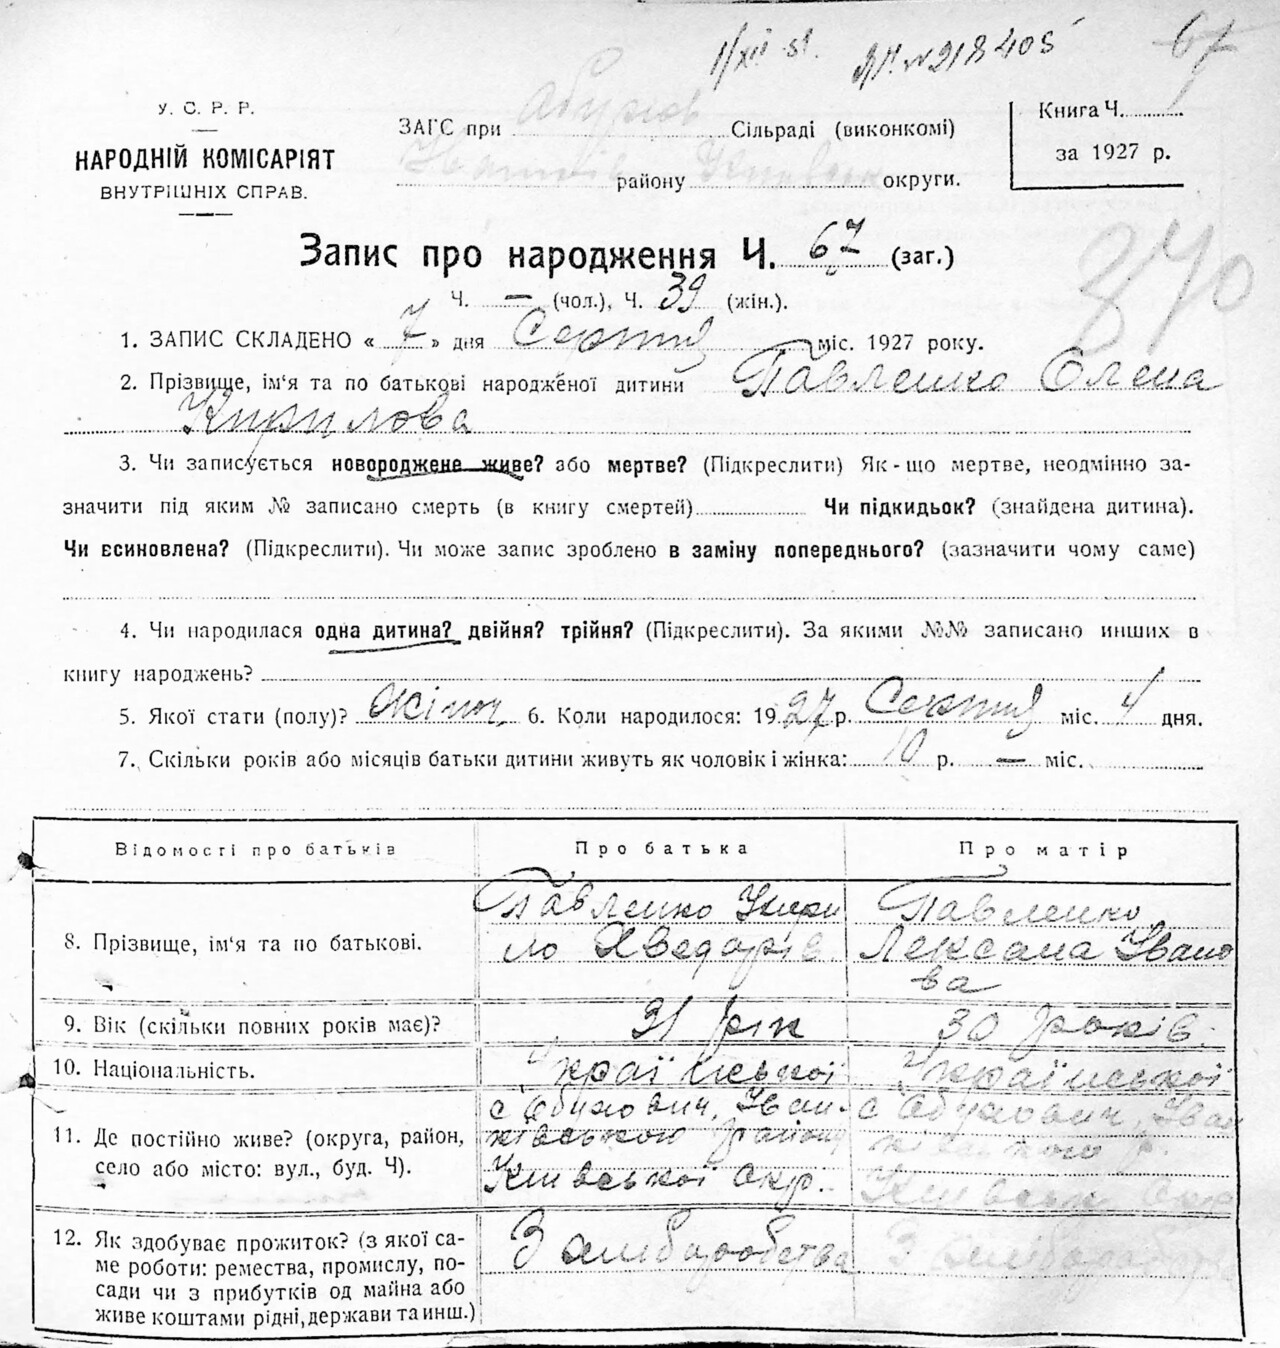 1/XII 51. № 218405 67
У. С. Р. Р.
НАРОДНІЙ КОМІСАРІЯТ
ВНУТРІШНІХ СПРАВ.
ЗАГС при Сільраді (виконкомі)
району округи.
Книга Ч.
за 1927 р.
Запис про народження Ч. 67 (заг.)
Ч. — (чол.), Ч. 39 (жін.).
1. ЗАПИС СКЛАДЕНО « 7 » дня Серпня міс. 1927 року.
2. Прізвище, ім'я та по батькові народженої дитини Павленко Олена
Кирилова
3. Чи записується новороджене живе? або мертве? (Підкреслити) Як-що мертве, неодмінно за-
значити під яким № записано смерть (в книгу смертей) Чи підкидьок? (знайдена дитина).
Чи всиновлена? (Підкреслити). Чи може запис зроблено в заміну попереднього? (зазначити чому саме)
4. Чи народилася одна дитина? двійня? трійня? (Підкреслити). За якими №№ записано инших в
книгу народжень?
5. Якої стати (полу)? жіноч. 6. Коли народилося: 1927 р. Серпня міс. 4 дня.
7. Скільки років або місяців батьки дитини живуть як чоловік і жінка: 10 р. — міс.
Відомості про батьків Про батька Про матір
8. Прізвище, ім'я та по батькові. Павленко Кири Павленко
ло Хведорів Лексана Івано
ва
9. Вік (скільки повних років має)? 31 рік 30 років.
10. Національність. Української Української
11. Де постійно живе? (округа, район,
село або місто: вул., буд. Ч).
с Обухович, Іван- с Обухович, Іван
ківського району ківського р.
Київської окр. Київськ окр
12. Як здобуває прожиток? (з якої са-
ме роботи: ремества, промислу, по-
сади чи з прибутків од майна або
живе коштами рідні, держави та инш.)
З хліборобства З хліборобства